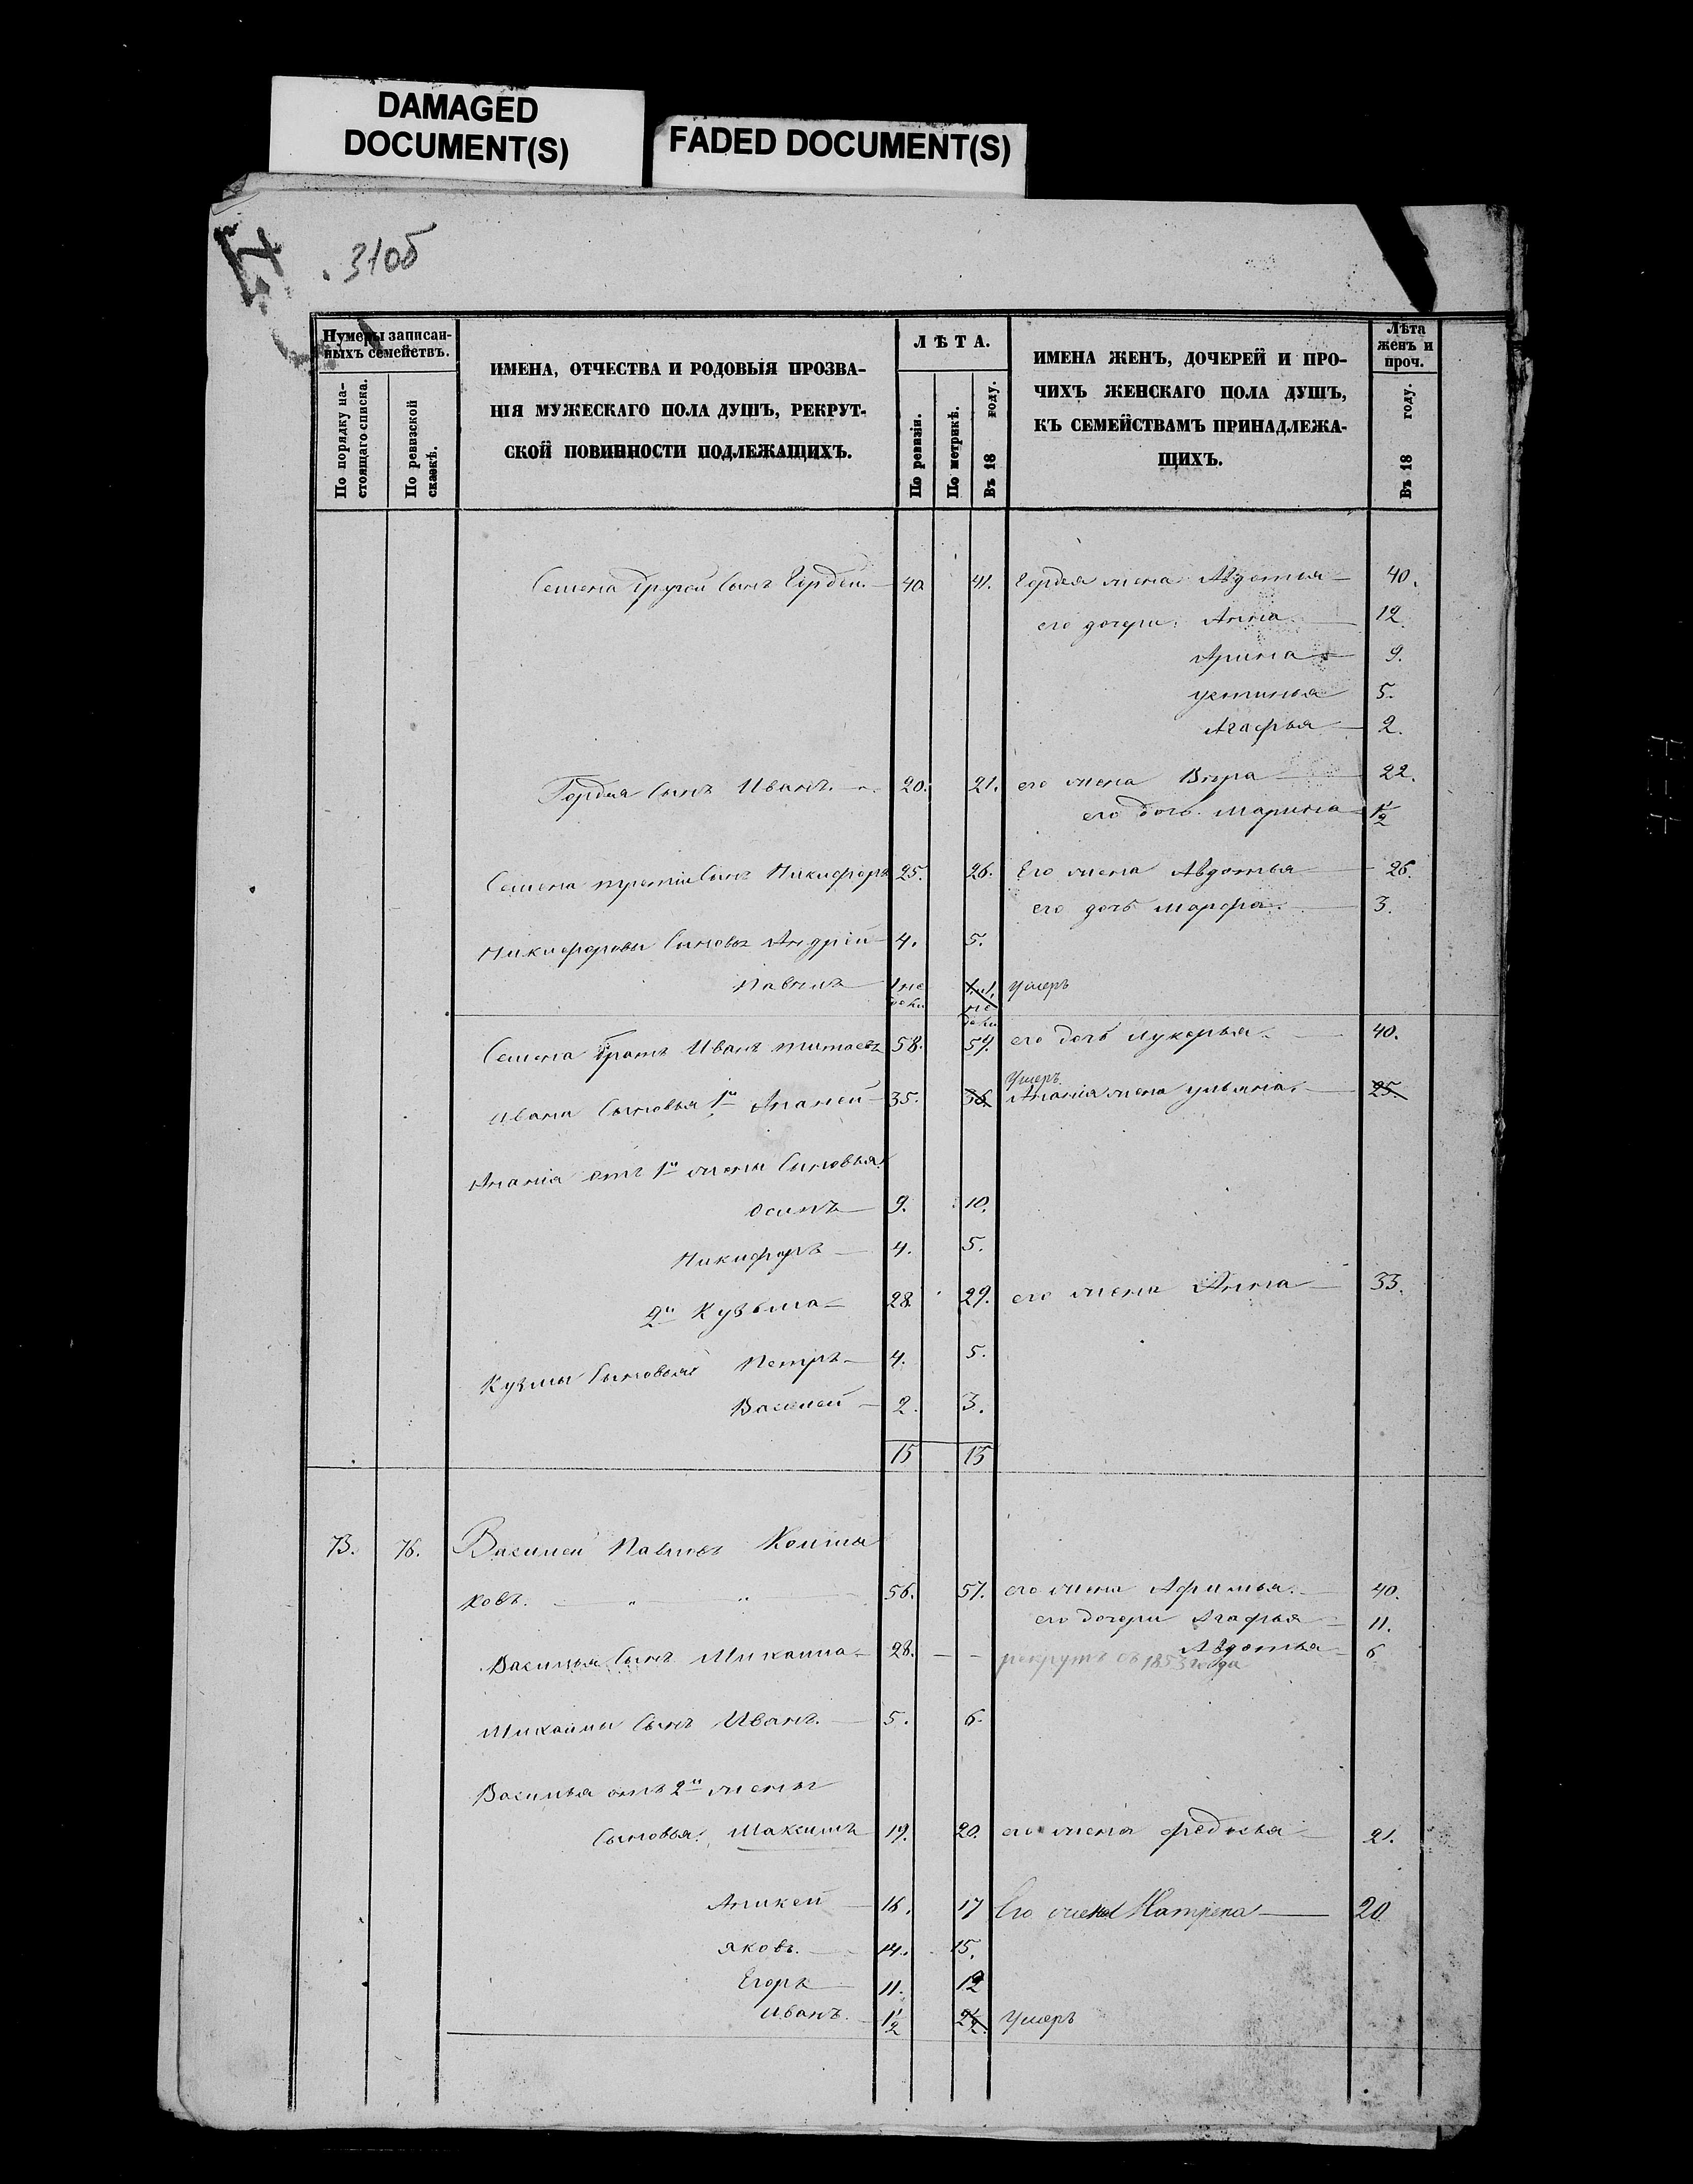 DAMAGED
DOCUMENT(S)
FADED DOCUMENT(S)
310б
Нумеры записан-
ныхъ семействъ.
По порядку на-
стоящаго списка.
По ревизской
сказкѣ.
ИМЕНА, ОТЧЕСТВА И РОДОВЫЯ ПРОЗВА-
НІЯ МУЖЕСКАГО ПОЛА ДУШЪ, РЕКРУТ-
СКОЙ ПОВИННОСТИ ПОДЛЕЖАЩИХЪ.
ЛѢТА.
По ревизіи.
По метрикѣ.
Въ 18 году.
ИМЕНА ЖЕНЪ, ДОЧЕРЕЙ И ПРО-
ЧИХЪ ЖЕНСКАГО ПОЛА ДУШЪ,
КЪ СЕМЕЙСТВАМЪ ПРИНАДЛЕЖА-
ЩИХЪ.
Лѣта
женъ и
проч.
Въ 18 году.
Семена другой сынъ Гордей. 40 41. Гордея жена Авдотья 40.
его дочери: Анна 12.
Арина 9.
Устинья 5.
Агафья 2.
Гордея сынъ Иванъ. 20. 21. его жена Вѣра 22.
его дочь Марина 1/2
Семена третій сынъ Никифоръ 25. 26. Его жена Авдотья 26.
его дочь Марфа. 3.
Никифоровы сыновья Андрей 4. 5.
Павелъ 1 недели недели умеръ
Семена братъ Иванъ Титаевъ 58. 59. его дочь Лукерья. 40.
Умеръ
Ивана сыновья 1й Ананей 35. 36. Ананія жена Ульяна. 25.
Ананія отъ 1й жены сыновья:
Осипъ 9. 10.
Никифоръ 4. 5.
2й Кузьма 28. 29. его жена Анна 33.
Кузмы сыновья Петръ 4. 5.
Василей 2. 3.
15 13
73. 76. Василей Павловъ Колма
ковъ. 56. 57. его жена Афимья. 40.
его дочери Агафья 11.
Авдотья 6
Василья сынъ Михаила 28. рекрутъ съ 1853 года
Михайлы сынъ Иванъ. 5. 6.
Василья отъ 2й жены
сыновья: Максимъ 19. 20. его жена Федосья 21.
Аникей 16. 17 Его жена Матрена 20
Яковъ. 14. 15.
Егоръ 11. 12
Иванъ. 1/2 2 1/2 умеръ